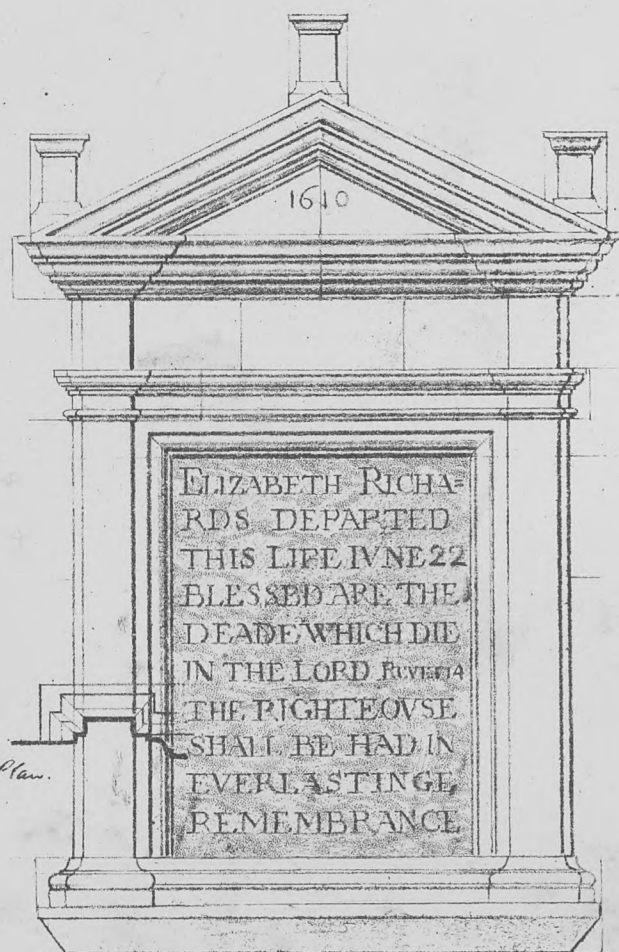 1610
ELIZABETH RICHA=
RDS DEPARTED
THIS LIFE IVNE 22
BLESSED ARE THE
DEADE WHICH DIE
IN THE LORD
THE RIGHTEOVSE
SHALL BE HAD IN
EVERLASTINGE
REMEMBRANCE
Plan.